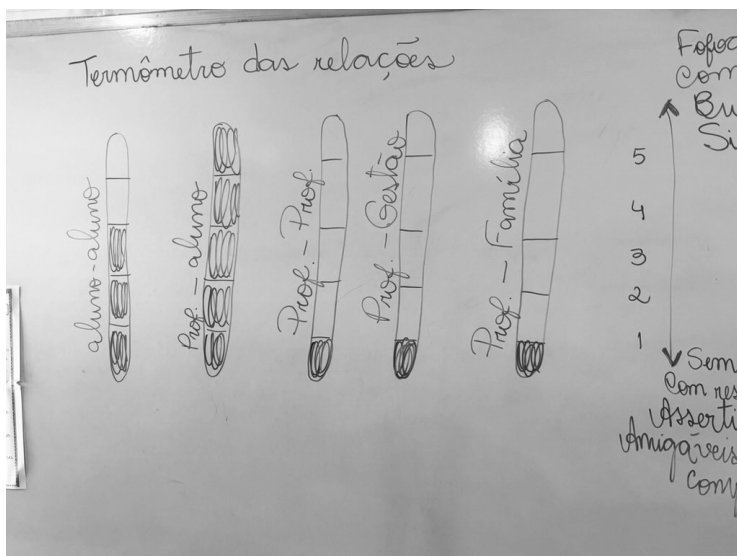 Termômetro das relações
aluno-aluno
Prof. - aluno
Prof. - Prof.
Prof. - Gestão
Prof. - Família
5
4
3
2
1
Com
Sem
Com
Amigáveis